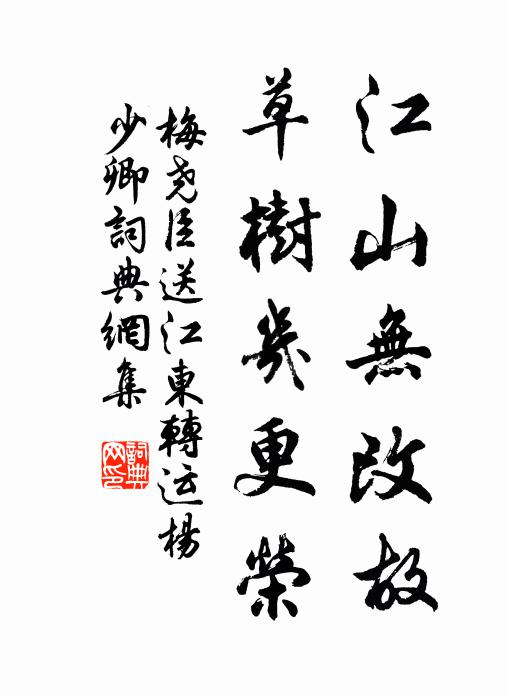 江山無改故
草樹幾更榮
梅堯臣送江東轉运楊
少卿詞典網集
詞典网印